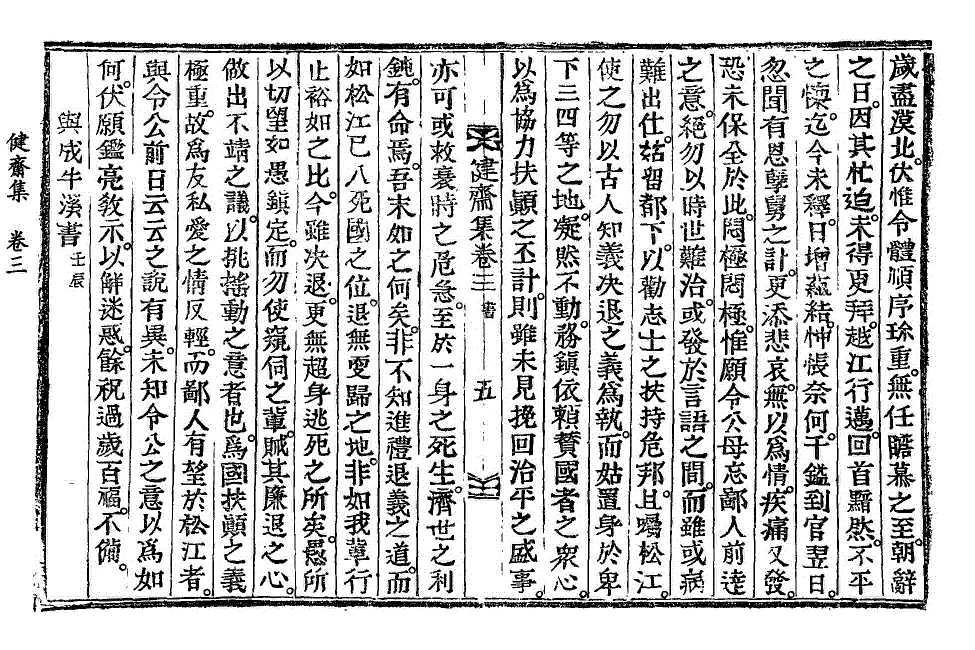 歲盡漠北。伏惟令體順序珍重。無任瞻慕之至。朝辭
之日。因其忙迫。未得更拜。越江行邁。回首黯然。不平
之懷。迄今未釋。日增蘊結。忡悵奈何。千鎰到官翌日。
忽聞有恩孽舅之計。更添悲哀。無以爲情。疾痛又發。
恐未保全於此。悶極悶極。惟願令公毋忘鄙人前達
之意。絕勿以時世難治。或發於言語之間。而雖或病
難出仕。姑留都下。以勸志士之扶持危邦。且囑松江。
使之勿以古人知義決退之義爲執。而姑置身於卑
下三四等之地。凝然不動。務鎭依賴贊國者之衆心。
以爲協力扶顚之丕計。則雖未見挽回治平之盛事。
建齋集卷三 書 五
亦可或救衰時之危急。至於一身之死生。濟世之利
鈍。有命焉。吾末如之何矣。非不知進禮退義之道。而
如松江已入死國之位。退無更歸之地。非如我輩行
止裕如之比。今雖决退。更無超身逃死之所矣。愚所
以切望如愚鎭定。而勿使窺伺之輩。賊其廉退之心。
做出不靖之議。以挑搖動之意者也。爲國扶顚之義
極重。故爲友私愛之情反輕。而鄙人有望於松江者。
與令公前日云云之說有異。未知令公之意以爲如
何。伏願鑑亮敎示。以解迷惑。餘祝過歲百福。不備。
與成牛溪書 壬辰
健齋集 卷三